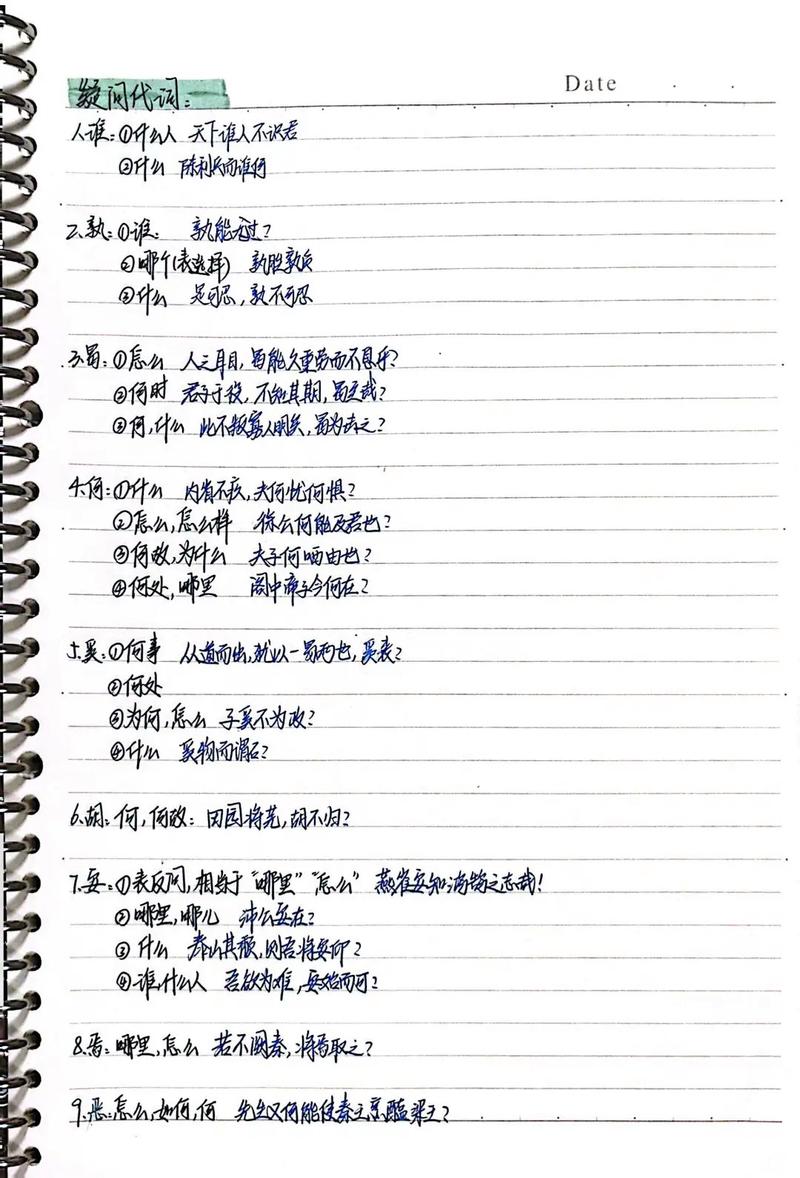 Date
疑问代词：
1.谁：①什么人 天下谁人不识君
②什么 陈利兵而谁何
2.孰：①谁： 孰能无过？
②哪个(表选择) 孰胜孰负
③什么 是可忍，孰不可忍
3.曷：①怎么 人之耳目，曷能久熏劳而不息乎？
②何时 君子于役，不知其期，曷至哉？
③何，什么 此不叛寡人明矣，曷为击之？
4.何：①什么 内省不疚，夫何忧何惧？
②怎么，怎么样 徐公何能及君也？
③何故，为什么 夫子何哂由也？
④何处，哪里 阁中帝子今何在？
5.奚：①何事 从道而出，犹以一易两也，奚丧？
②何处
③为何，怎么 子奚不为政？
④什么 奚物而谓石？
6.胡：何，何故：田园将芜，胡不归？
7.安：①表反问，相当于“哪里”“怎么” 燕雀安知鸿鹄之志哉！
②哪里，哪儿 沛公安在？
③什么 泰山其颓，则吾将安仰？
④谁，什么人 吾欲为难，安始而可？
8.焉：哪里，怎么 若不阙秦，将焉取之？
9.恶：怎么，如何，何 先生又何能使秦王烹醢梁王？